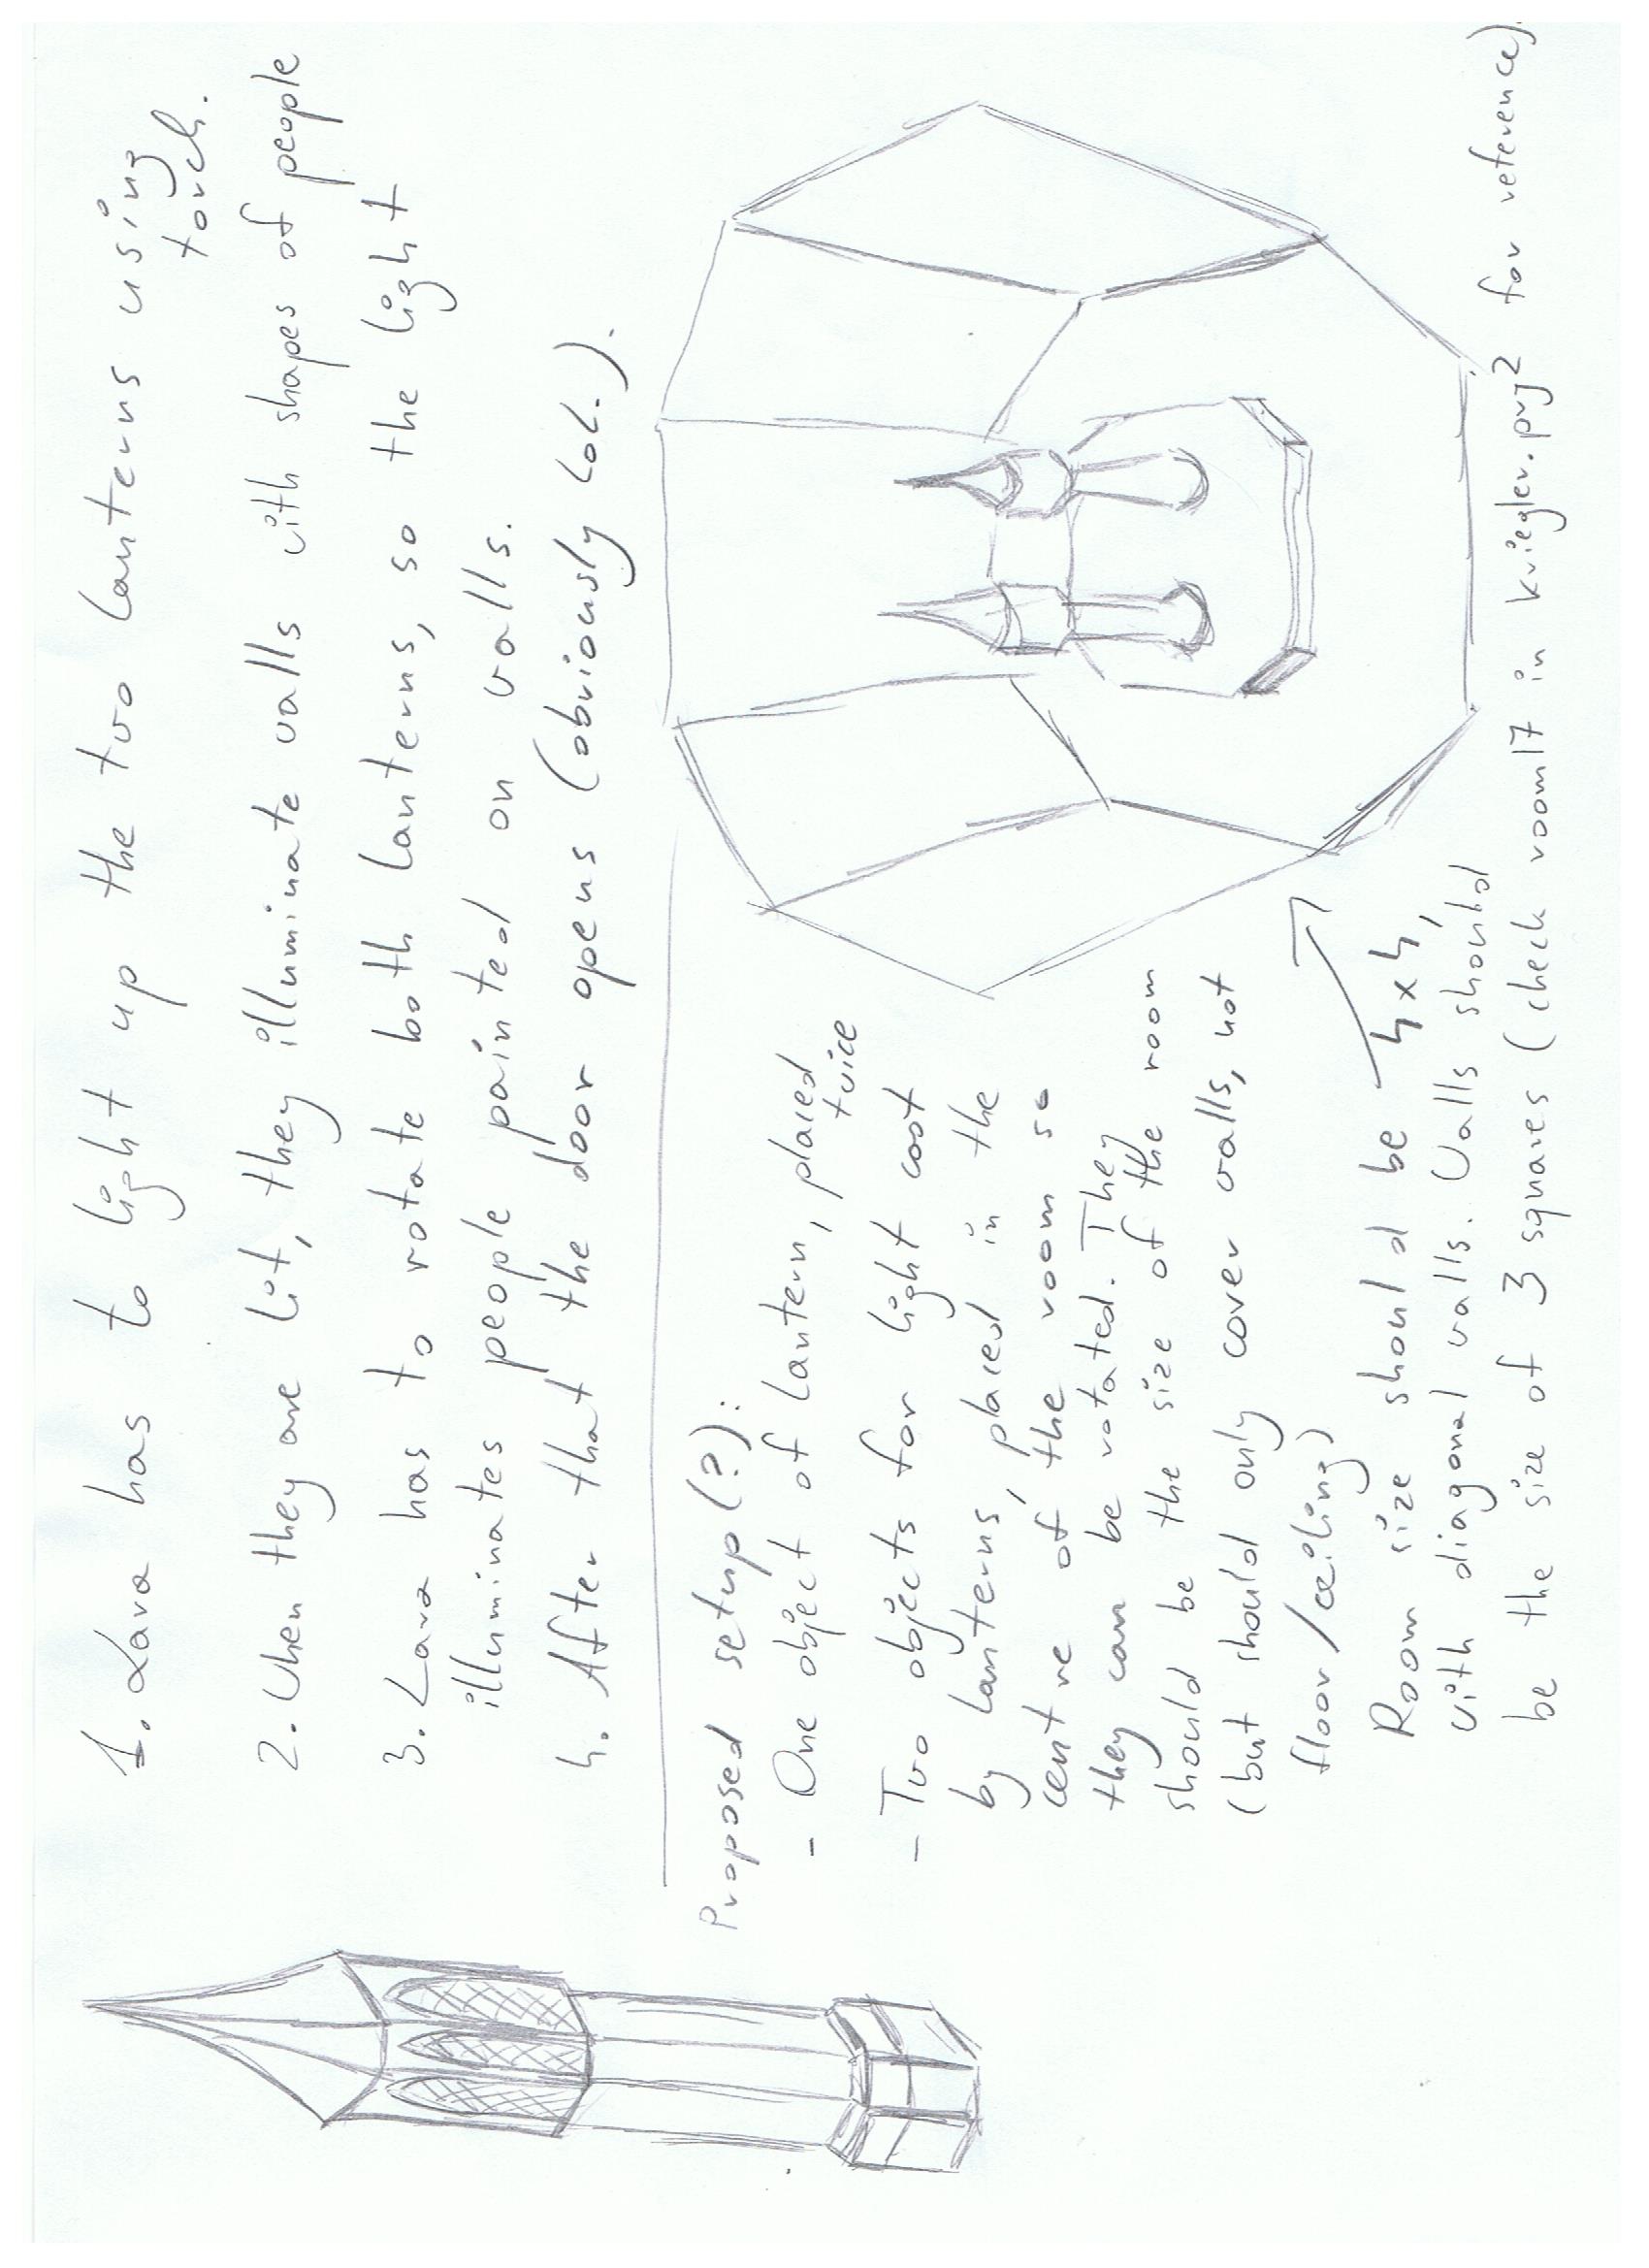 1. Lara has to light up the two lanterns using
torch.
2. When they are lit, they illuminate walls with shapes of people
3. Lara has to rotate both lanterns, so the light
illuminates people painted on walls.
4. After that the door opens (obviously lol.).
Proposed setup(?):
- One object of lantern, placed
twice
- Two objects for light cast
by lanterns, placed in the
centre of the room so
they can be rotated. They
should be the size of the room
(but should only cover walls, not
floor/ceiling)
Room size should be 4x4,
with diagonal walls. Walls should
be the size of 3 squares (check room17 in kriegler.prj2 for reference).